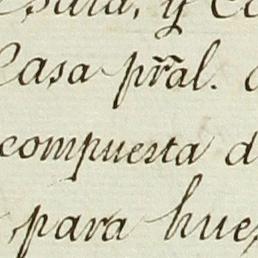 y
Casa pr̃al.
compuesta d
para hue